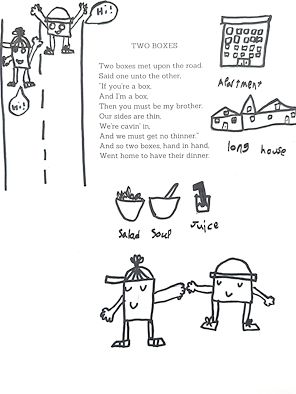 Hi!
Hi!
TWO BOXES
Two boxes met upon the road.
Said one unto the other,
"If you're a box,
And I'm a box,
Then you must be my brother.
Our sides are thin,
We're cavin' in,
And we must get no thinner."
And so two boxes, hand in hand,
Went home to have their dinner.
Apartment
long house
Salad
Soup
Juice